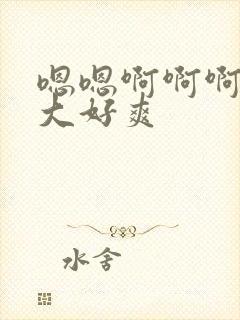 嗯嗯啊啊啊
大好爽
水舍